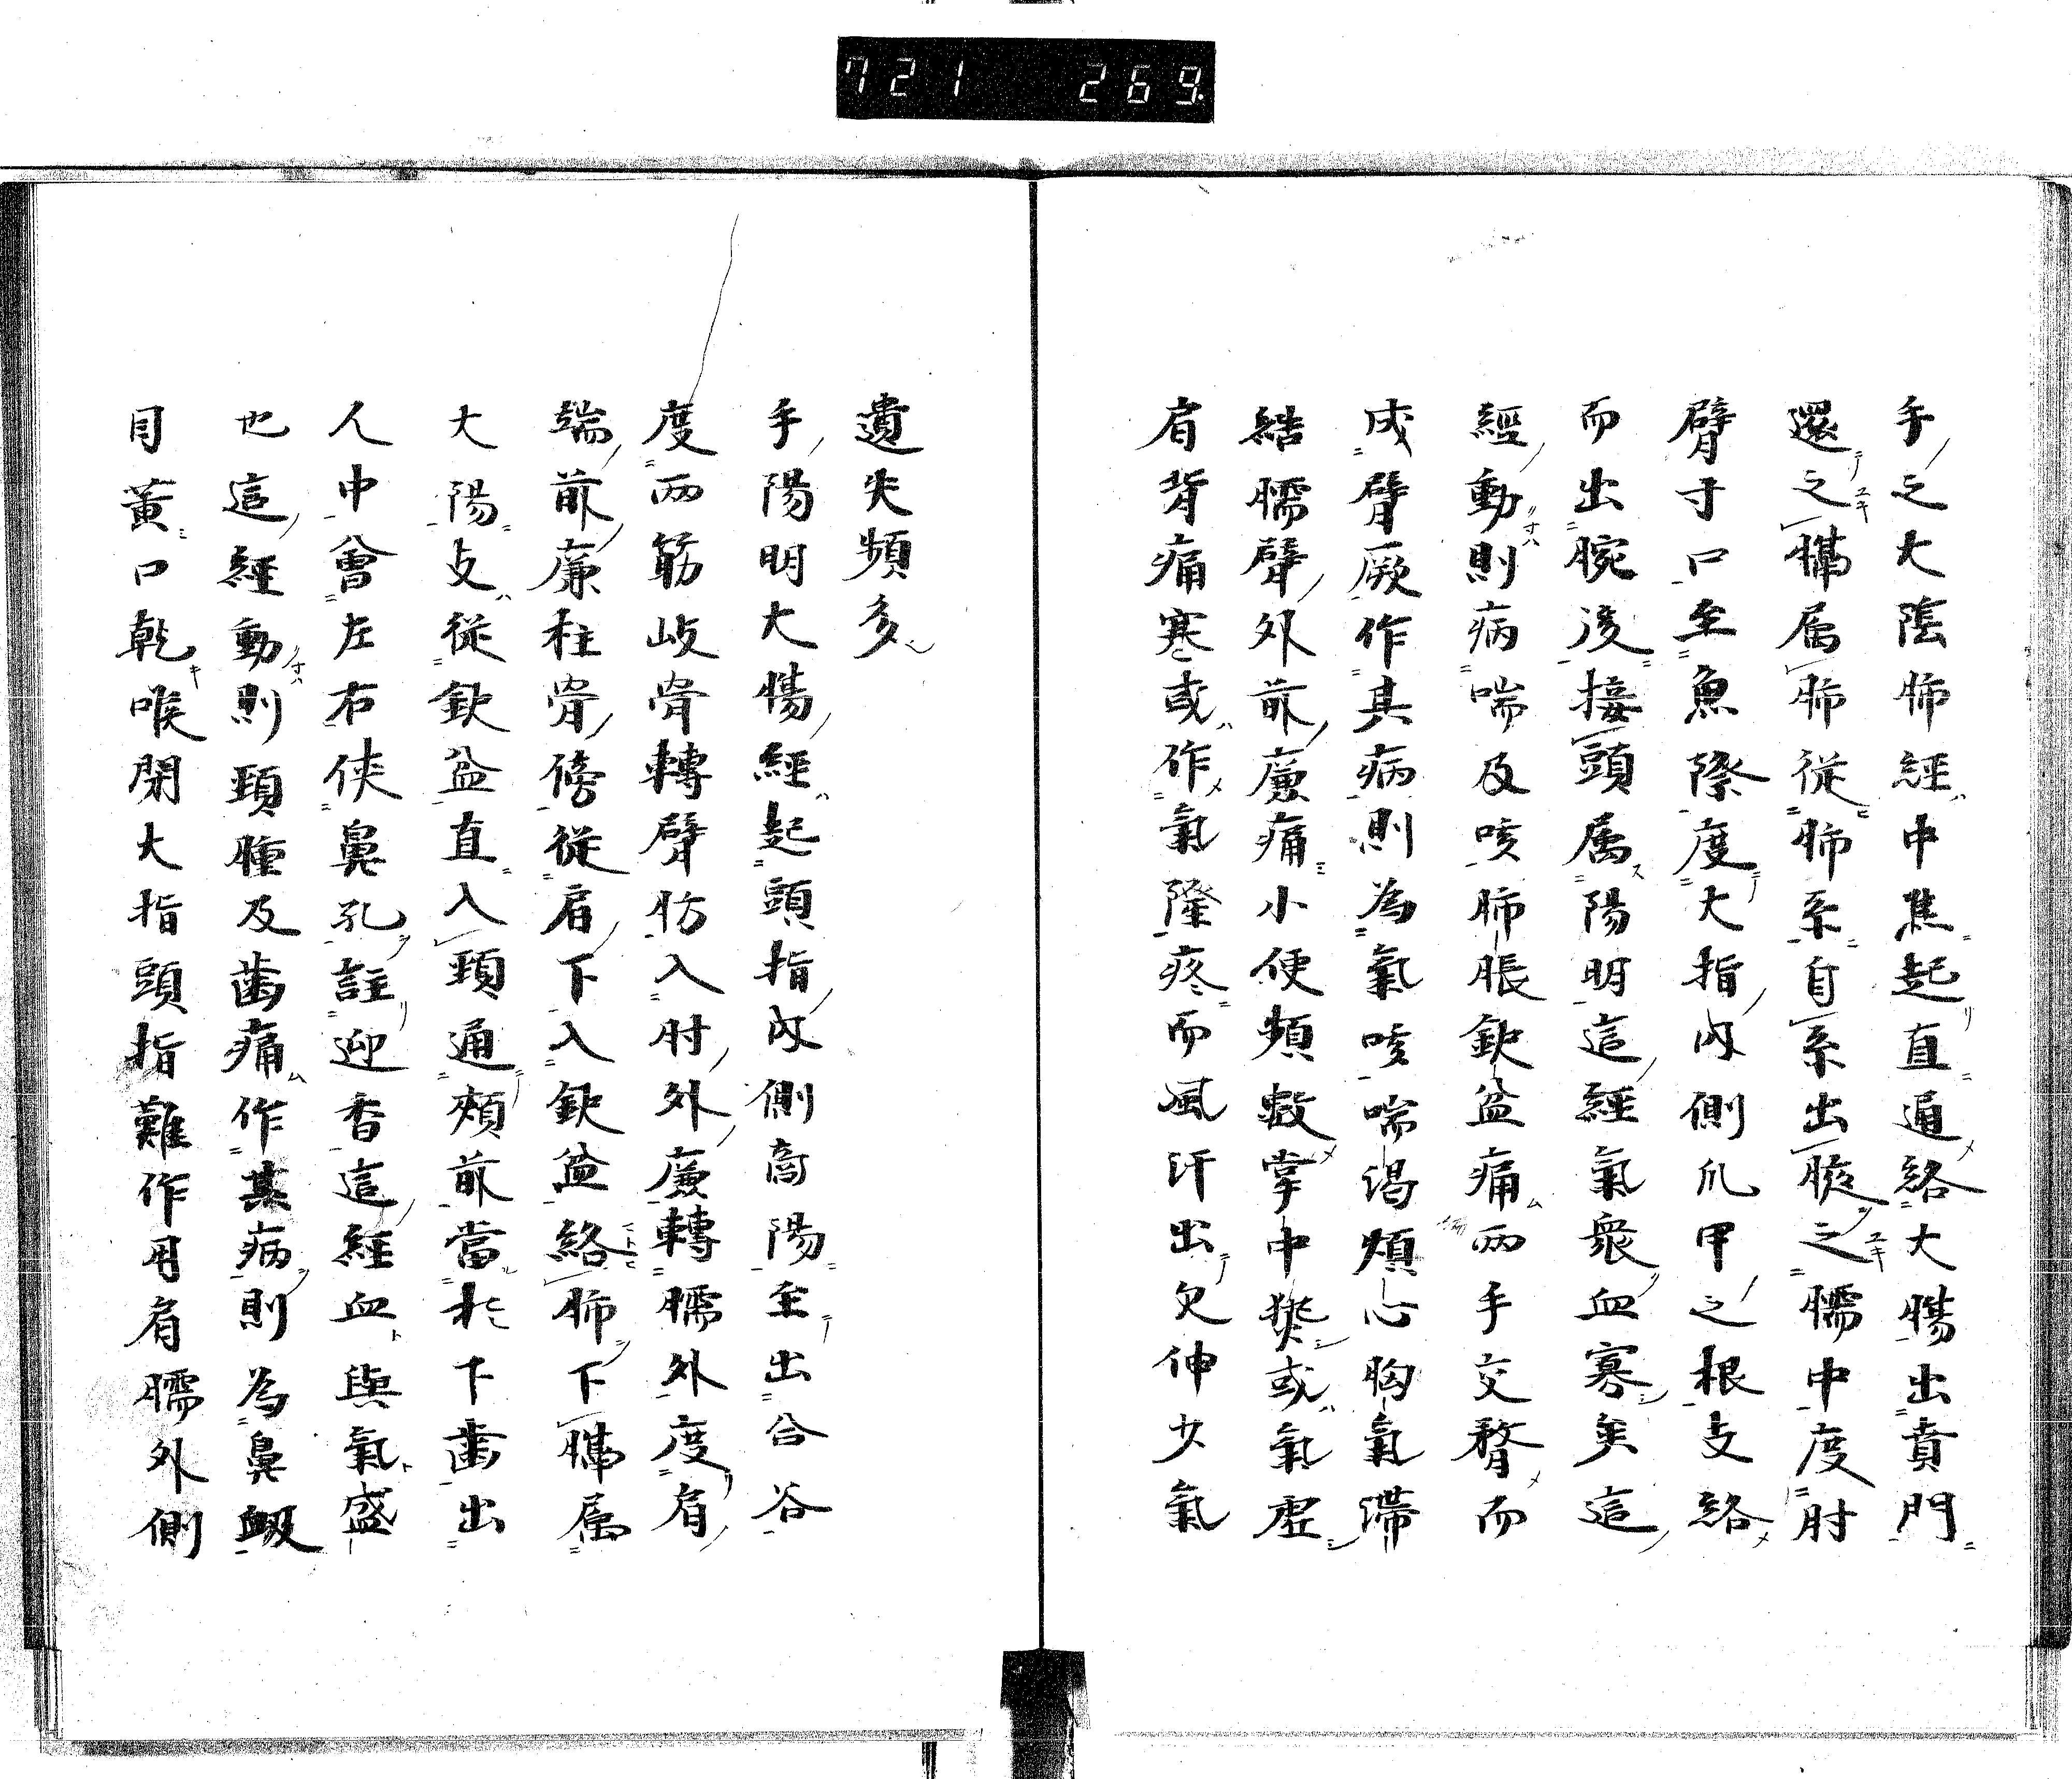 721 269
手之大陰肺經中焦起直通絡大膓出賁門
還之膈属肺從肺系自系出腋之臑中度肘
臂寸口至魚際度大指內側爪甲之根支絡
而出腕後接頭属陽明這經氣衆血寡矣這
經動則病喘及咳肺脹鈌盆痛両手交瞀而
成臂厥作其病則為氣咳喘渇煩心胸氣滞
結臑臂外前廉痛小便頻數掌中㷫或氣虚
肩背痛寒或作氣隆疼而風汗出欠伸少氣
遺失頻多
手陽明大膓經起頭指內側商陽至出合谷
度両筋岐骨轉臂肪入肘外廉轉臑外度肩
端前廉柱骨傍從肩下入鈌盆絡肺下膈属
大陽支從鈌盆直入頸通頰前當於下齒出
人中會左右侠鼻孔註迎香這經血與氣盛
也這經動則頸腫及齒痛作其病則為鼻衂
目黄口乾喉閉大指頭指難作用肩臑外側